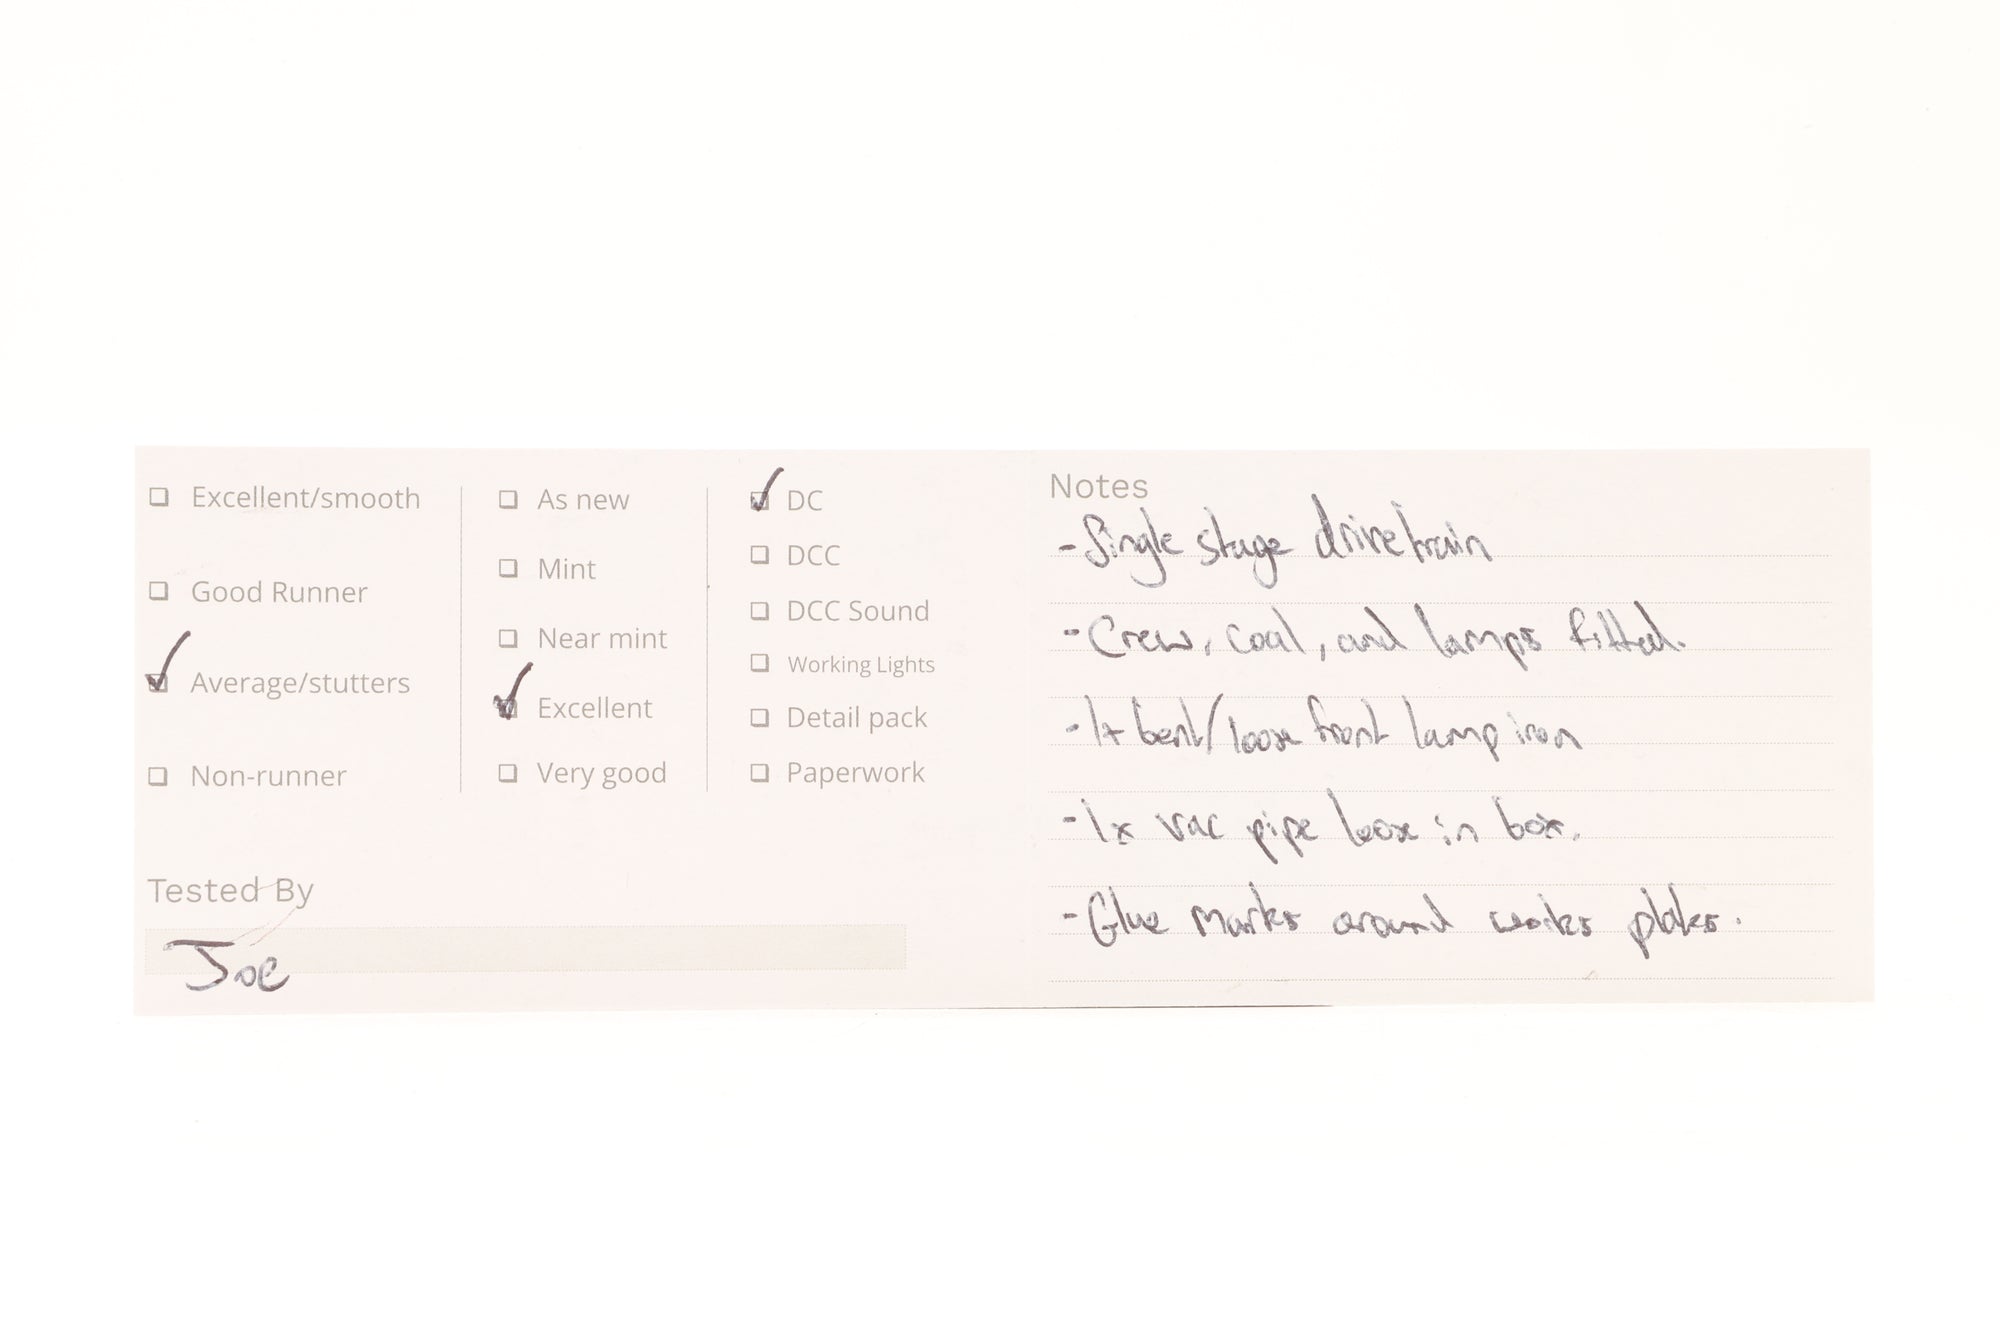 Excellent/smooth
Good Runner
Average/stutters
Non-runner
As new
Mint
Near mint
Excellent
Very good
DC
DCC
DCC Sound
Working Lights
Detail pack
Paperwork
Tested By
Joe
Notes
- Single stage drivetrain
- Crew, coal, and lamps fitted.
- 1x bent/loose front lamp iron
- 1x vac pipe loose in box.
- Glue marks around works plates.